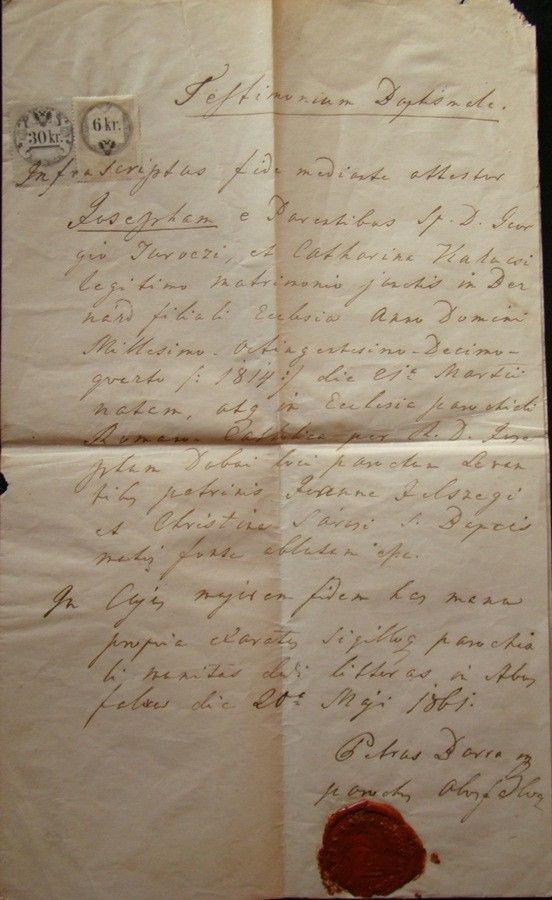 30 kr.
6 kr.
Testimonium Baptismale.
Infrascriptus fide mediante attestor
Josepham e Parentibus Sp. D. Geor
gio Turoczi, et Catharina
legitimo matrimonio junctis in Ber
nárd filiali Ecclesia Anno Domini
Millesimo Octingentesimo Decimo
quarto /: 1814 :/ die Martii
natam, atq in Ecclesia parochiali
Romano Catholica per A. R. D. Jose
phum Dobai loci parochum Levan
tibus patrinis Joanne
et Christina Sárosi S. Baptis
matis fonte ablutam esse.
In Cujus majorem fidem has manu
propria exaratas Sigilloq parochia
li munitas dedi litteras in Abos
falva die 20a Maji 1861.
Petrus Darra
parochus